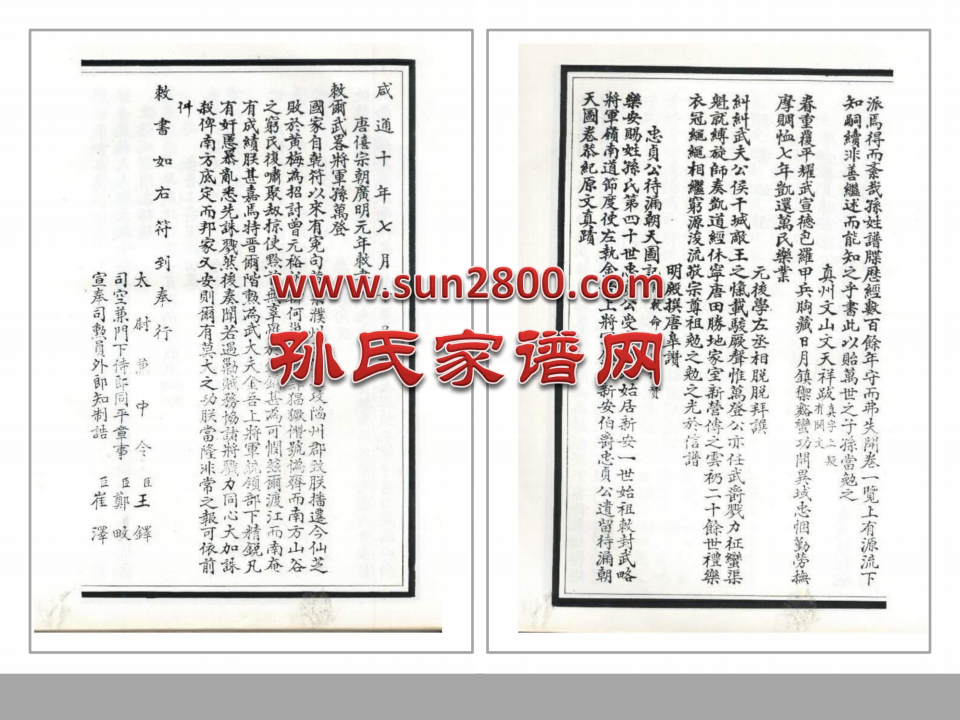 派焉得而紊哉孫姓譜牒歷經數百餘年守而弗失開卷一覽上有源流下
知嗣續非善繼述而能知之乎書此以貽萬世之子孫當勉之
真州文山文天祥跋 真字上疑有闕文
春重覆平耀武宣德包羅甲兵胸藏日月鎮禦谿蠻功開異域忠悃勤勞撫
摩賙恤七年凱還萬民樂業
元後學左丞相脫脫拜譔
糾糾武夫公侯干城敵王之愾載駿厥聲惟萬登公亦任武爵戮力征蠻渠
魁就縛旋師奏凱道經休寧唐田勝地家室新營傳之雲礽二十餘世禮樂
衣冠繩繩相繼窮源浚流敬宗尊祖勉之勉之光於信譜
明殿撰唐皋讚
忠貞公待漏朝天國記
樂安賜姓孫氏第四十世忠公受始居新安一世始祖敕封武略
將軍嶺南道節度使左執金上將新安伯爵忠貞公遺留待漏朝
天國卷恭紀原文真蹟
咸通十年七月
唐僖宗朝廣明元年敕
敕爾武略將軍孫萬登
國家自乾符以來有冤句濮州郡致朕播遷今仙芝
敗於黃梅為招討曾元裕何猖獗僭號僞齊而南方山谷
之窮民復嘯聚劫掠使黔首無辜甚為可憫茲爾渡江而南奄
有成績朕甚嘉焉特晉爾階勳為武大夫金吾上將軍統領部下精銳凡
有奸慝暴亂悉先誅戮然後奏聞若遇勦賊務協諸將戮力同心大加誅
殺俾南方底定而邦家乂安則爾有莫大之功朕當隆非常之報可依前
件
敕書如右符到奉行
太尉兼中令臣王鐸
司空兼門下侍郎同平章事臣鄭畋
宣奉司勳員外郎知制誥臣崔澤
www.sun2800.com
孙氏家谱网